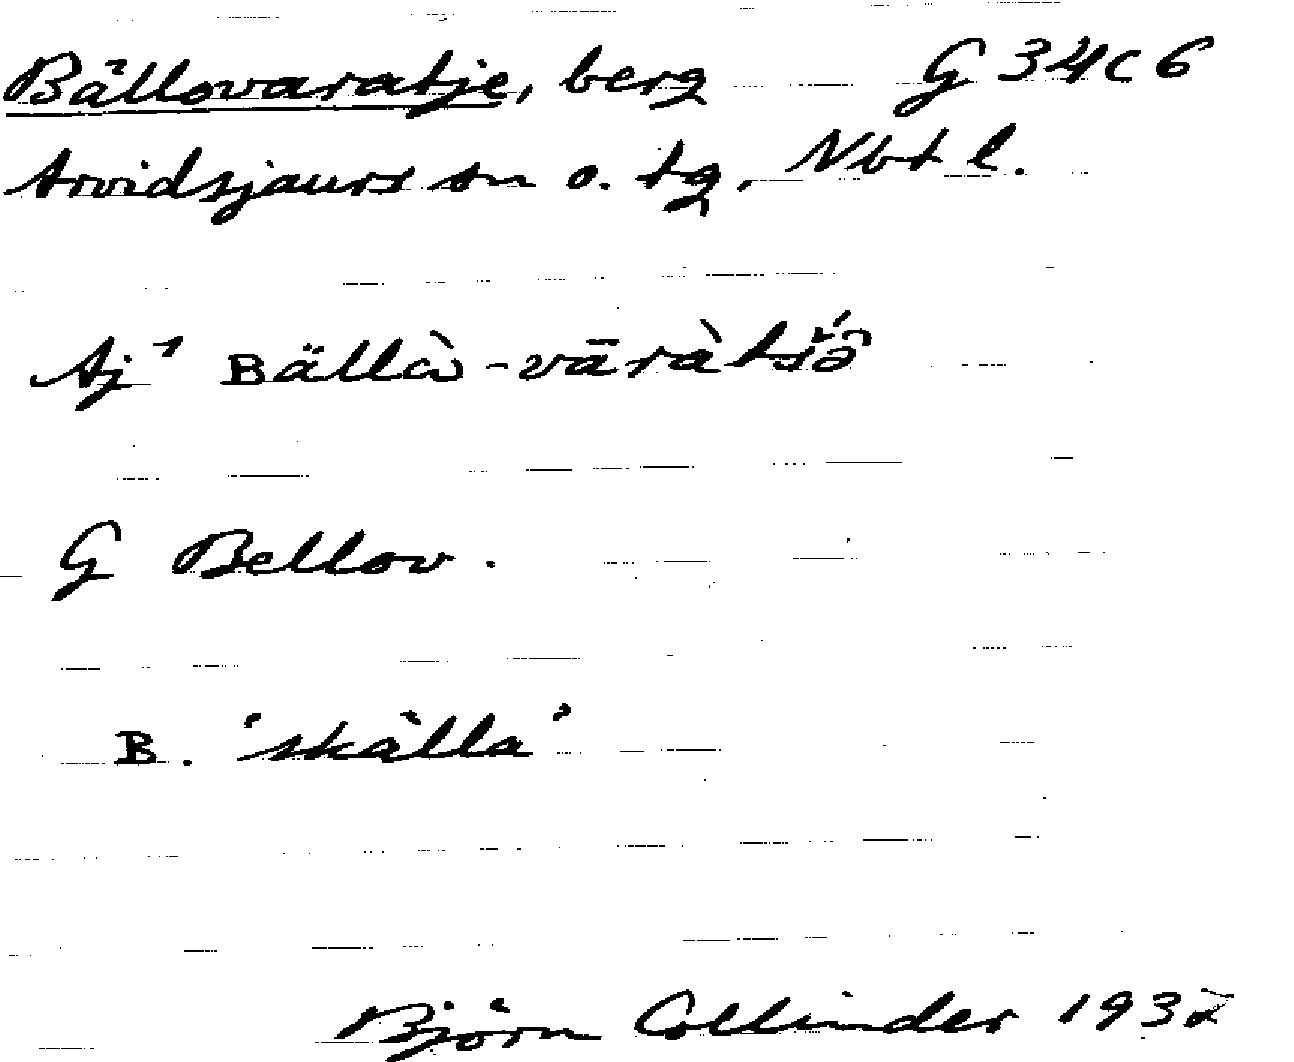 Bällovaratje, berg G 34 C 6
Arvidsjaurs sn o. tg, Nbt l.
Aj¹ Bällà-vāràtšə̂
G Bellov.
B. 'skälla'
Björn Collinder 1932